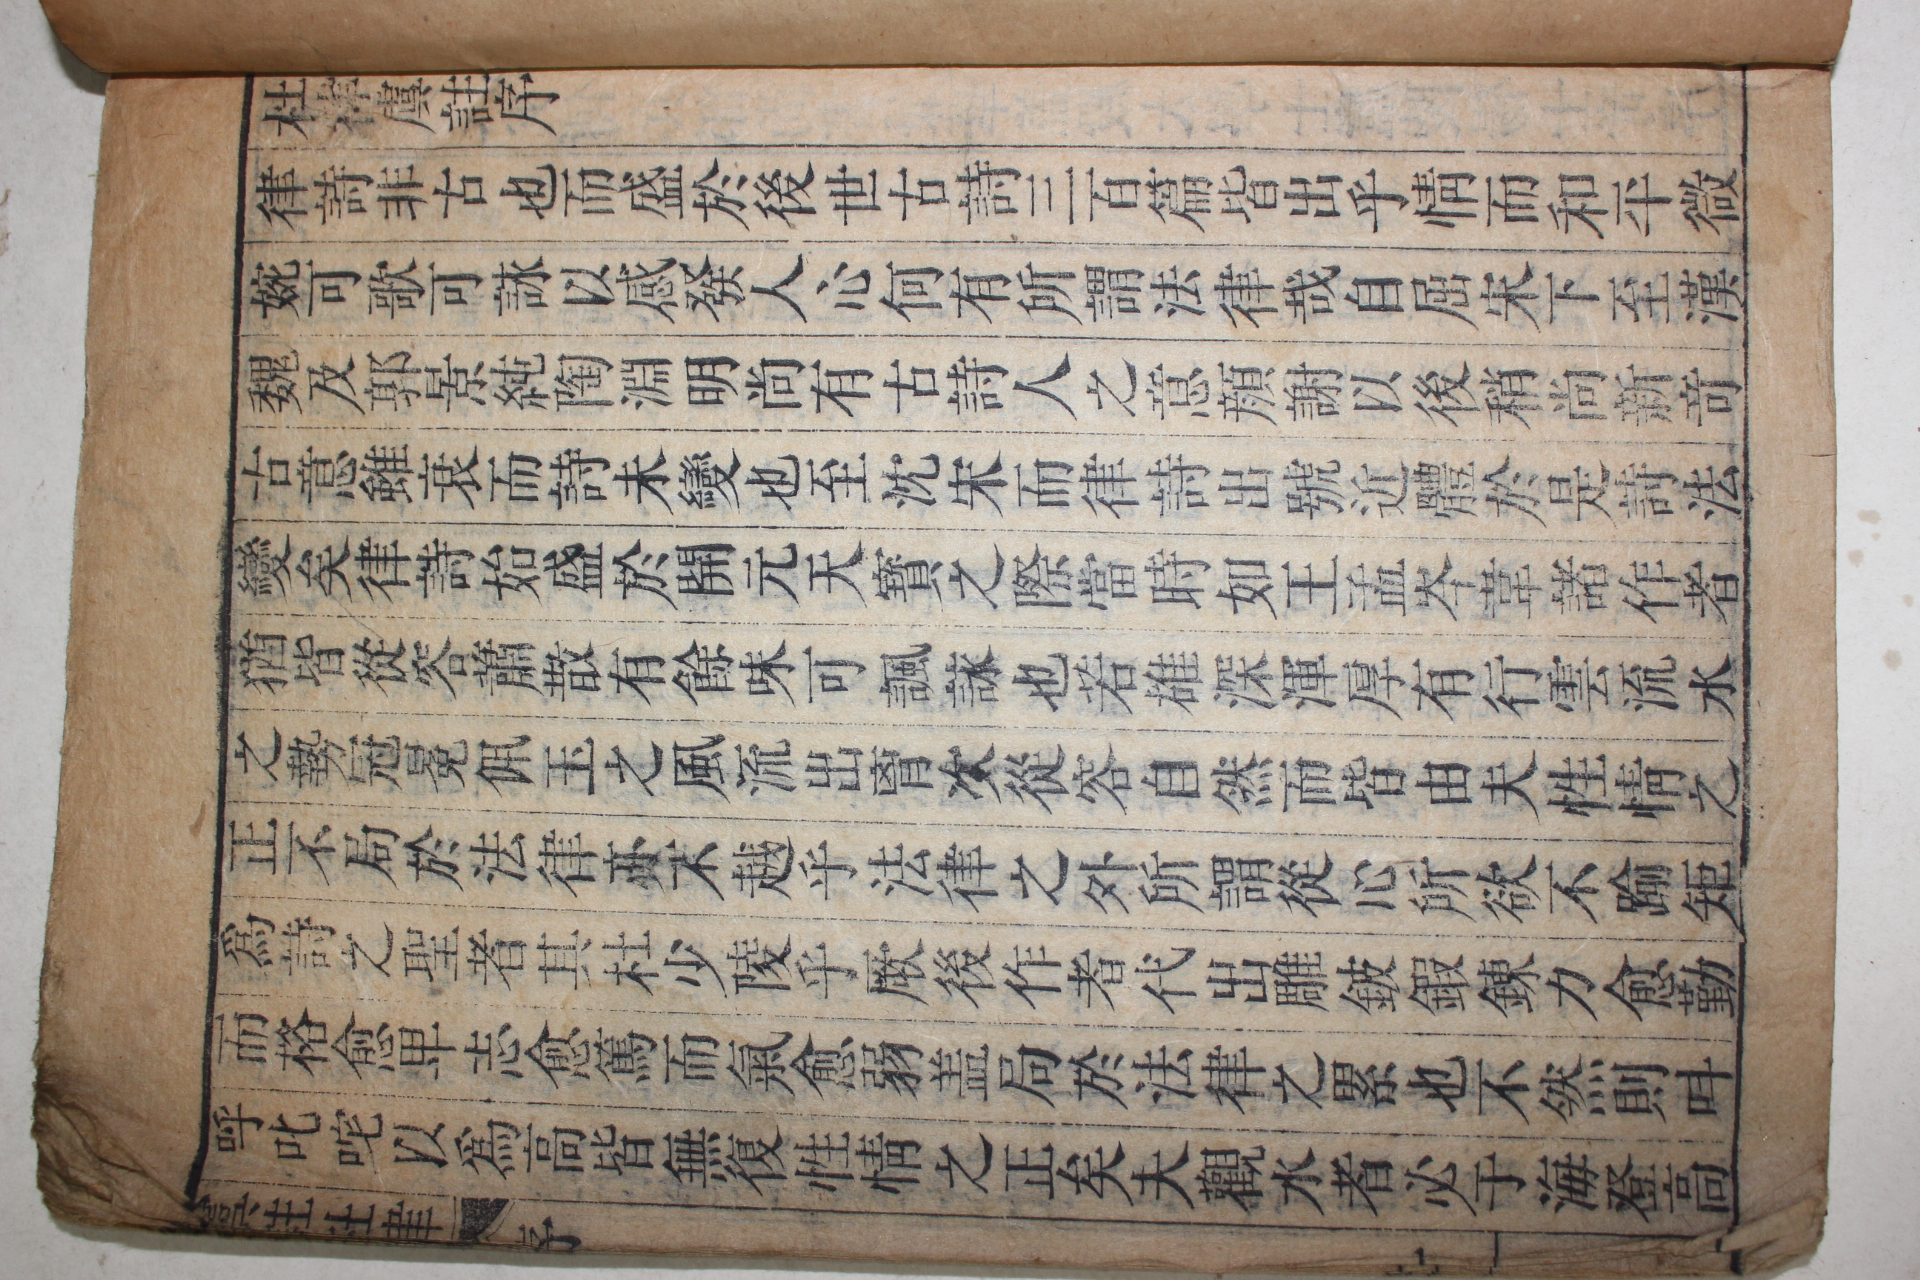 杜律虞註序
律詩非古也而盛於後世古詩三百篇皆出乎情而和平微
婉可歌可詠以感發人心何有所謂法律哉自屈宋下至漢
魏及郭景純陶淵明尚有古詩人之意顏謝以後稍尚新奇
古意雖衰而詩未變也至沈宋而律詩出號近體於是詩法
變矣律詩始盛於開元天寶之際當時如王孟岑韋諸作者
猶皆從容蕭散有餘味可諷詠也若雄深渾厚有行雲流水
之勢冠冕佩玉之風流出胷次從容自然而皆由夫性情之
正不局於法律亦不越乎法律之外所謂從心所欲不踰矩
爲詩之聖者其杜少陵乎厥後作者代出雕鎪鍛鍊力愈勤
而格愈卑志愈篤而氣愈弱盖局於法律之累也不然則叫
呼叱咤以爲高皆無復性情之正矣夫觀水者必于海登高
序